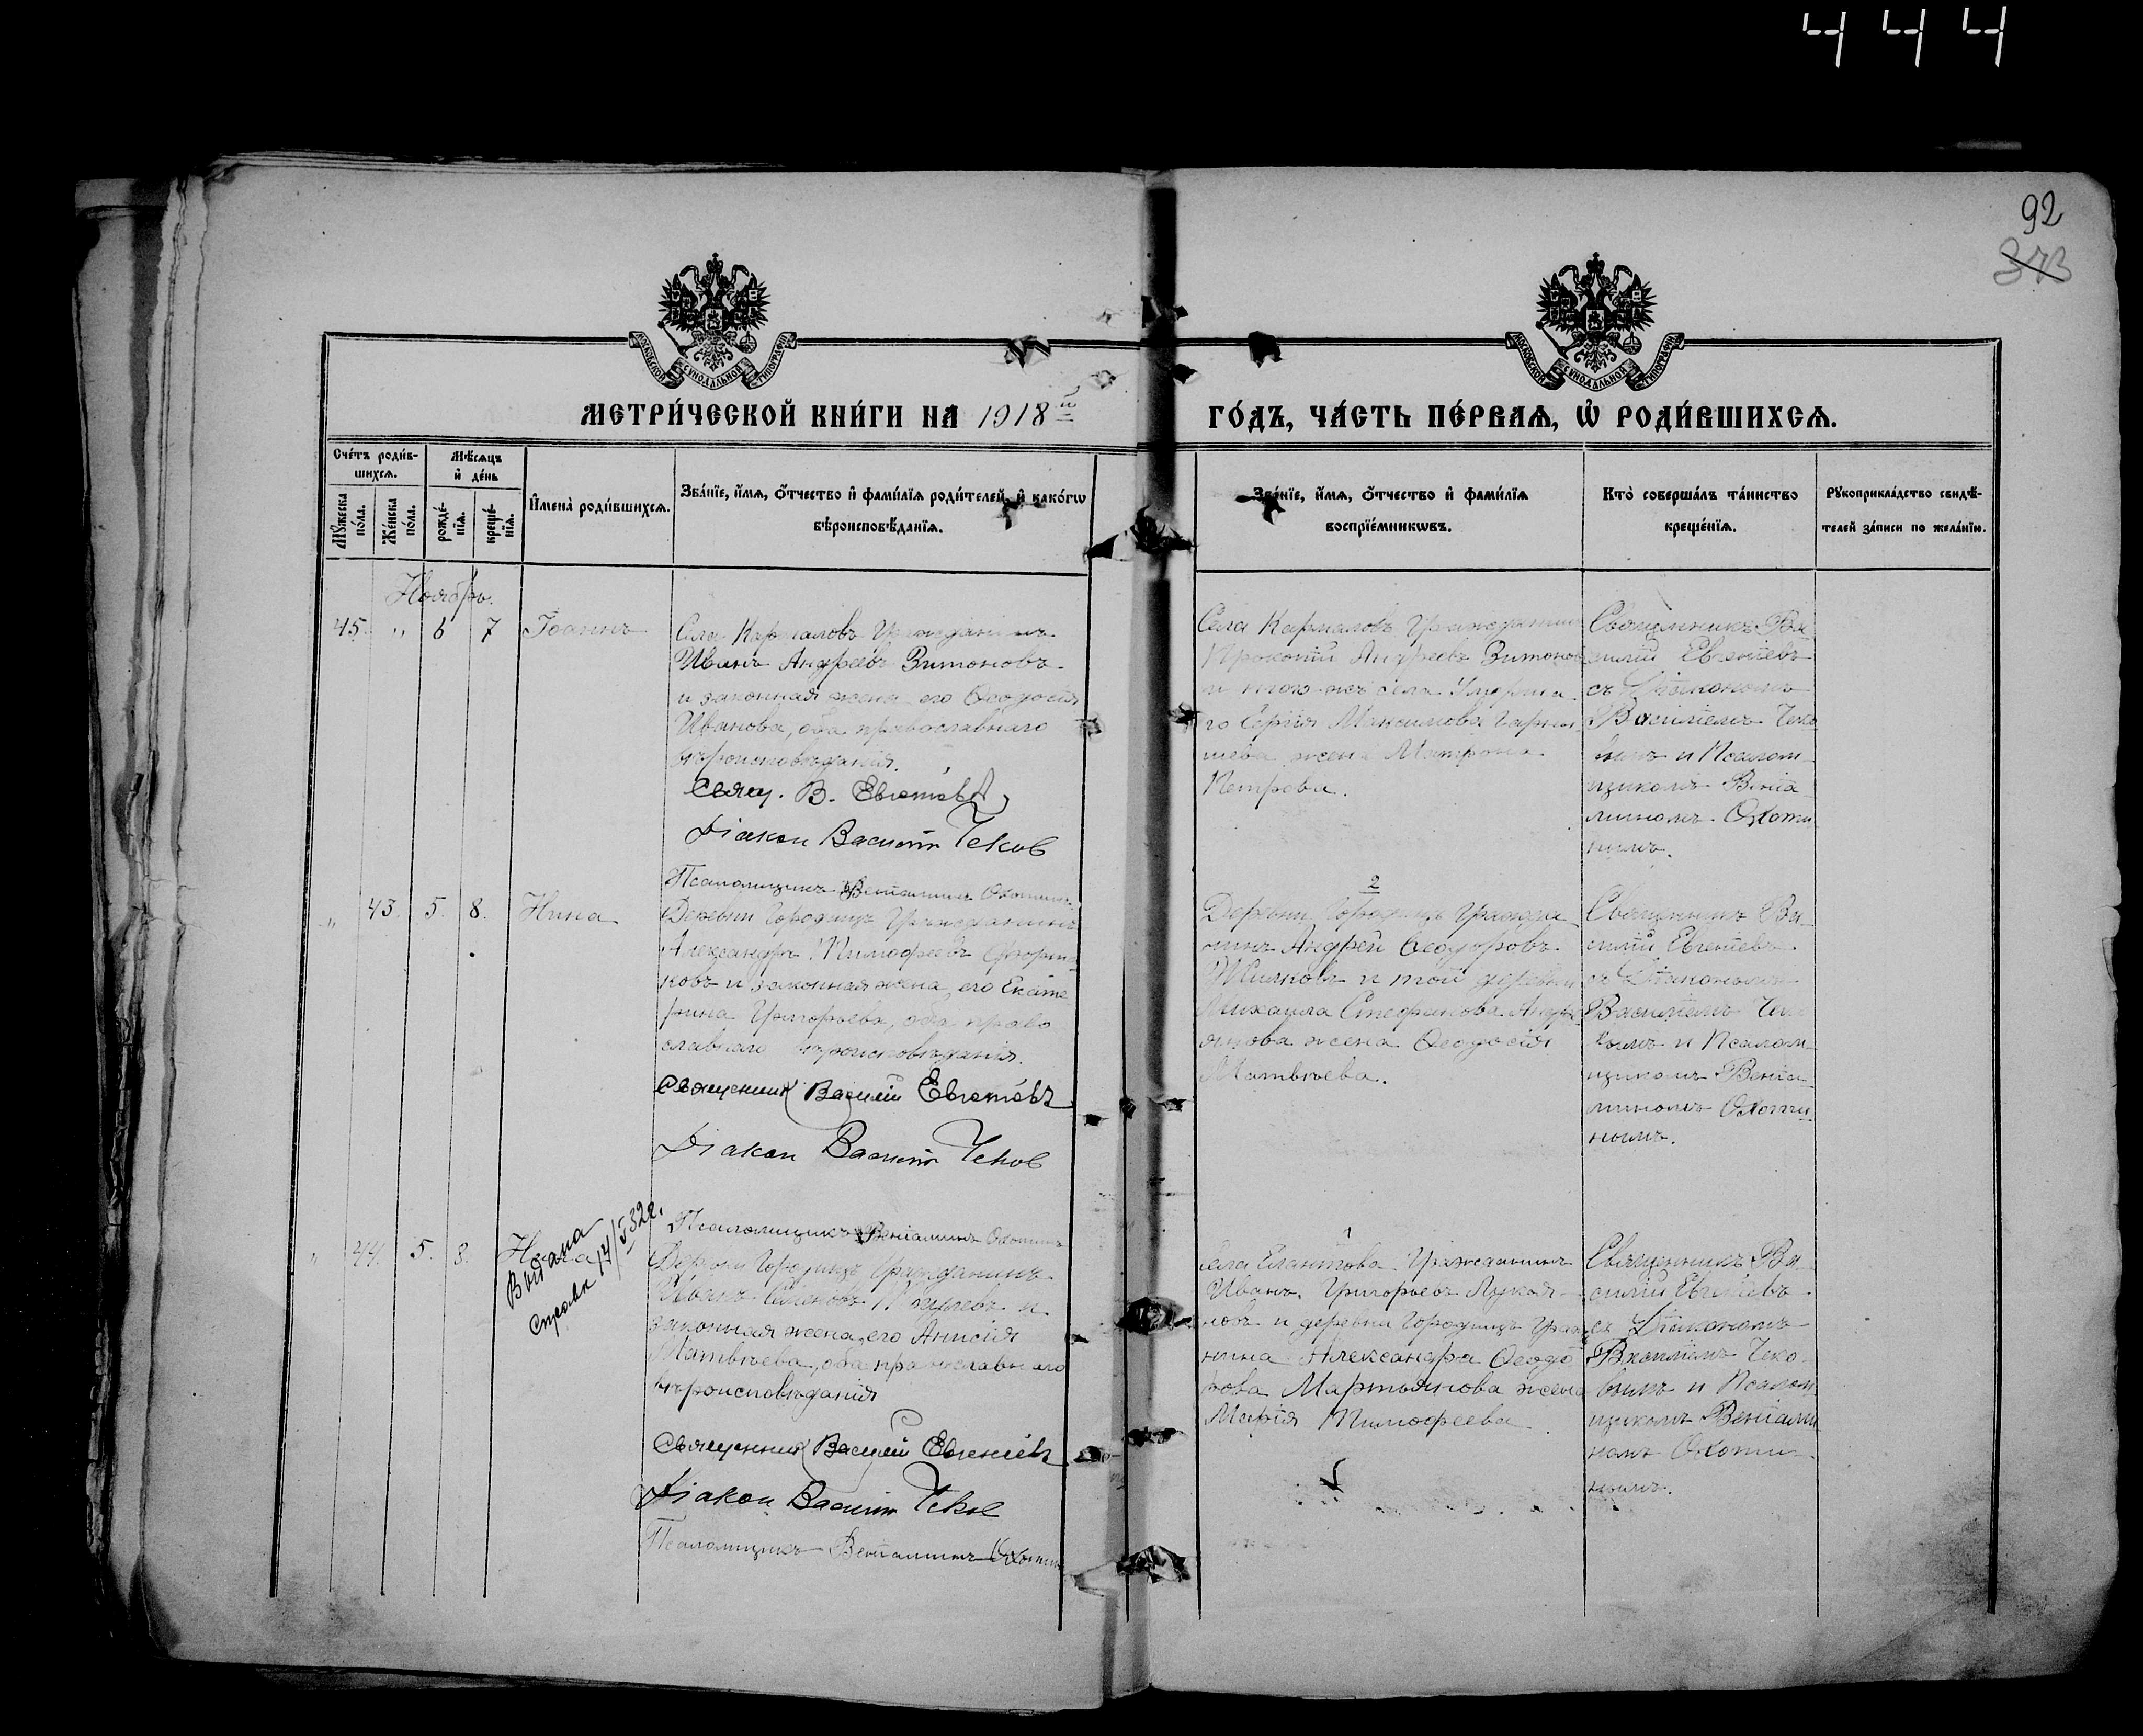 444
92
373
МОСКОВСКОЙ СѴНОДАЛЬНОЙ ТИПОГРАФІИ
МОСКОВСКОЙ СѴНОДАЛЬНОЙ ТИПОГРАФІИ
МЕТРИ́ЧЕСКОЙ КНИ́ГИ НА 1918й
ГО́ДЪ, ЧА́СТЬ ПЕ́РВАЯ, Ѡ҆ РОДИ́ВШИХСѦ.
Сче́тъ роди́в-
шихсѧ.
Мꙋжеска по́ла.
Же́нска по́ла.
Мѣ́сѧцъ
и҆ де́нь
рожде́-
нїѧ.
креще́-
нїѧ.
И҆мена̀ роди́вшихсѧ.
Зва́нїе, и҆́мѧ, ѻ҆́тчество и҆ фами́лїѧ роди́телей, и҆ како́гѡ
вѣроисповѣ́данїѧ.
Зва́нїе, и҆́мѧ, ѻ҆́тчество и҆ фами́лїѧ
воспрїе́мникѡвъ.
Кто̀ соверша́лъ та́инство
креще́нїѧ.
Рꙋкоприкла́дство свидѣ́-
телей за́писи по жела́нїю.
Ноябрь.
45. " 6 7 Іоаннъ
Села Кармаловъ Гражданинъ
Иванъ Андреевъ Зитоновъ
и законная жена его Ѳеодосія
Иванова, оба православнаго
вѣроисповѣданія.
Свящ. В. Евгеніевъ
Діакон Василій Чеков
Псаломщикъ Веніаминъ Охотинъ
Села Кармаловъ Гражданин
Прокопій Андреевъ Зитонов
и того же села
го Сергія Максимова
шева жена Матрона
Петрова.
Священникъ Ва
силій Евгеніевъ
съ Діакономъ
Василіемъ Чеко
вымъ и Псалом
щикомъ Веніа
миномъ Охоти
нымъ.
" 43. 5. 8. Нина
Деревни Городищъ Гражданинъ
Александръ Тимофеевъ
ковъ и законная жена его Екате
рина Григорьева, оба право
славнаго вѣроисповѣданія.
Священник Василій Евгеніевъ
Діакон Василій Чеков
Псаломщикъ Веніаминъ Охотинъ
2
Деревни Городищъ Гражда
нинъ Андрей Ѳеодоровъ
и той деревни
Михаила Стефанова
янова жена Ѳеодосія
Матвѣева.
Священникъ Ва
силій Евгеніевъ
съ Діакономъ
Василіемъ Че
ковымъ и Псалом
щикомъ Веніа
миномъ Охоти
нымъ.
" 44. 5. 8.
Выдана
справк 14/V 32г.
Деревни Городищъ Гражданинъ
Иванъ и
законная жена его Анисія
Матвѣева, оба православнаго
вѣроисповѣданія
Священник Василій Евгеніевъ
Діакон Василій Чеков
Псаломщикъ Веніаминъ Охотин
1
Села Елантова Гражданинъ
Иванъ Григорьевъ Лукоя
новъ и деревни Городищъ Граж
нина Александра Ѳеодо
рова Мартьянова жена
Марія Тимофеева
Священникъ Ва
силій Евгеніевъ
съ Діакономъ
Василіемъ Чеко
вымъ и Псалом
щикомъ Веніами
номъ Охоти
нымъ.